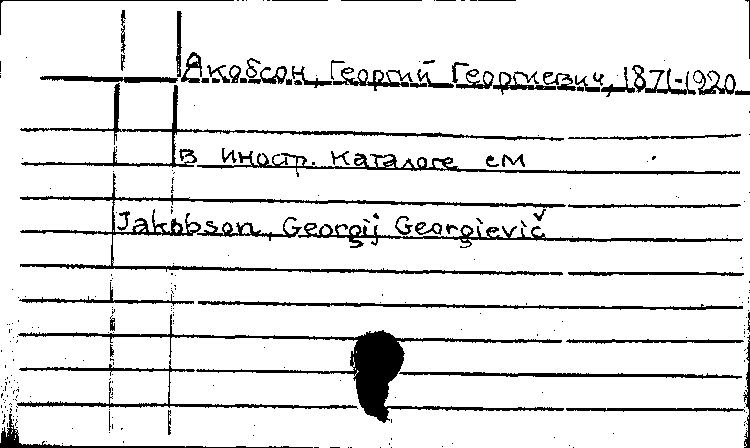 Якобсон, Георгий Георгиевич, 1871-1920
в иностр. каталоге см
Jakobson, Georgij Georgievič